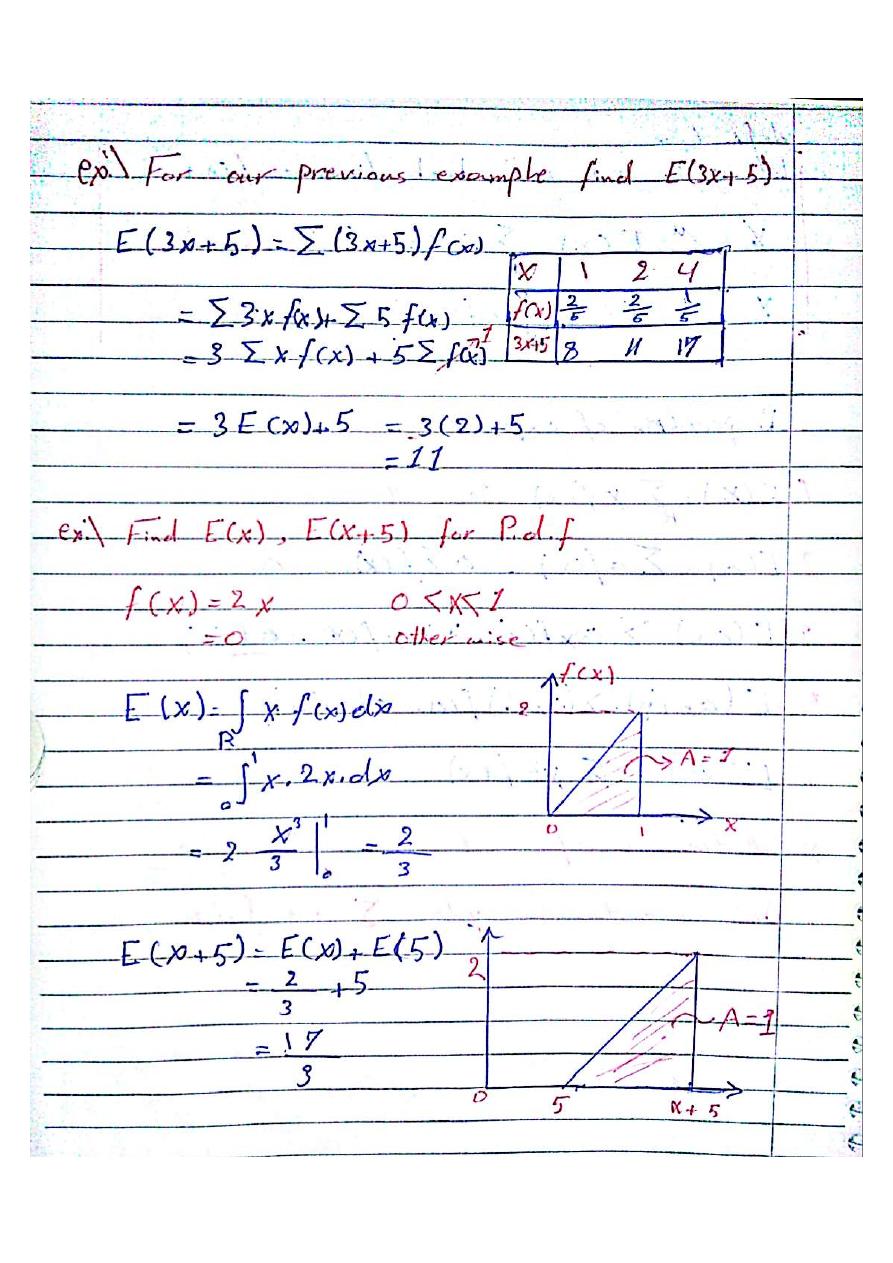 ex:\ For our previous example find E(3x+5)
E(3x+5) = Σ (3x+5) f(x)
= Σ 3x f(x) + Σ 5 f(x)
= 3 Σ x f(x) + 5 Σ f(x) 1
x 1 2 4
f(x) 2/5 2/5 1/5
3x+5 8 11 17
= 3 E(x) + 5 = 3(2) + 5
= 11
ex:\ Find E(x), E(x+5) for P.d.f
f(x) = 2x 0 < x < 1
= 0 otherwise
E(x) = ∫R x. f(x) dx
= ∫₀¹ x. 2x. dx
= 2 x³/3 |₀¹ = 2/3
f(x)
2
A = 1
0 1 x
E(x+5) = E(x) + E(5)
= 2/3 + 5
= 17/3
2
A = 1
0 5 x+5